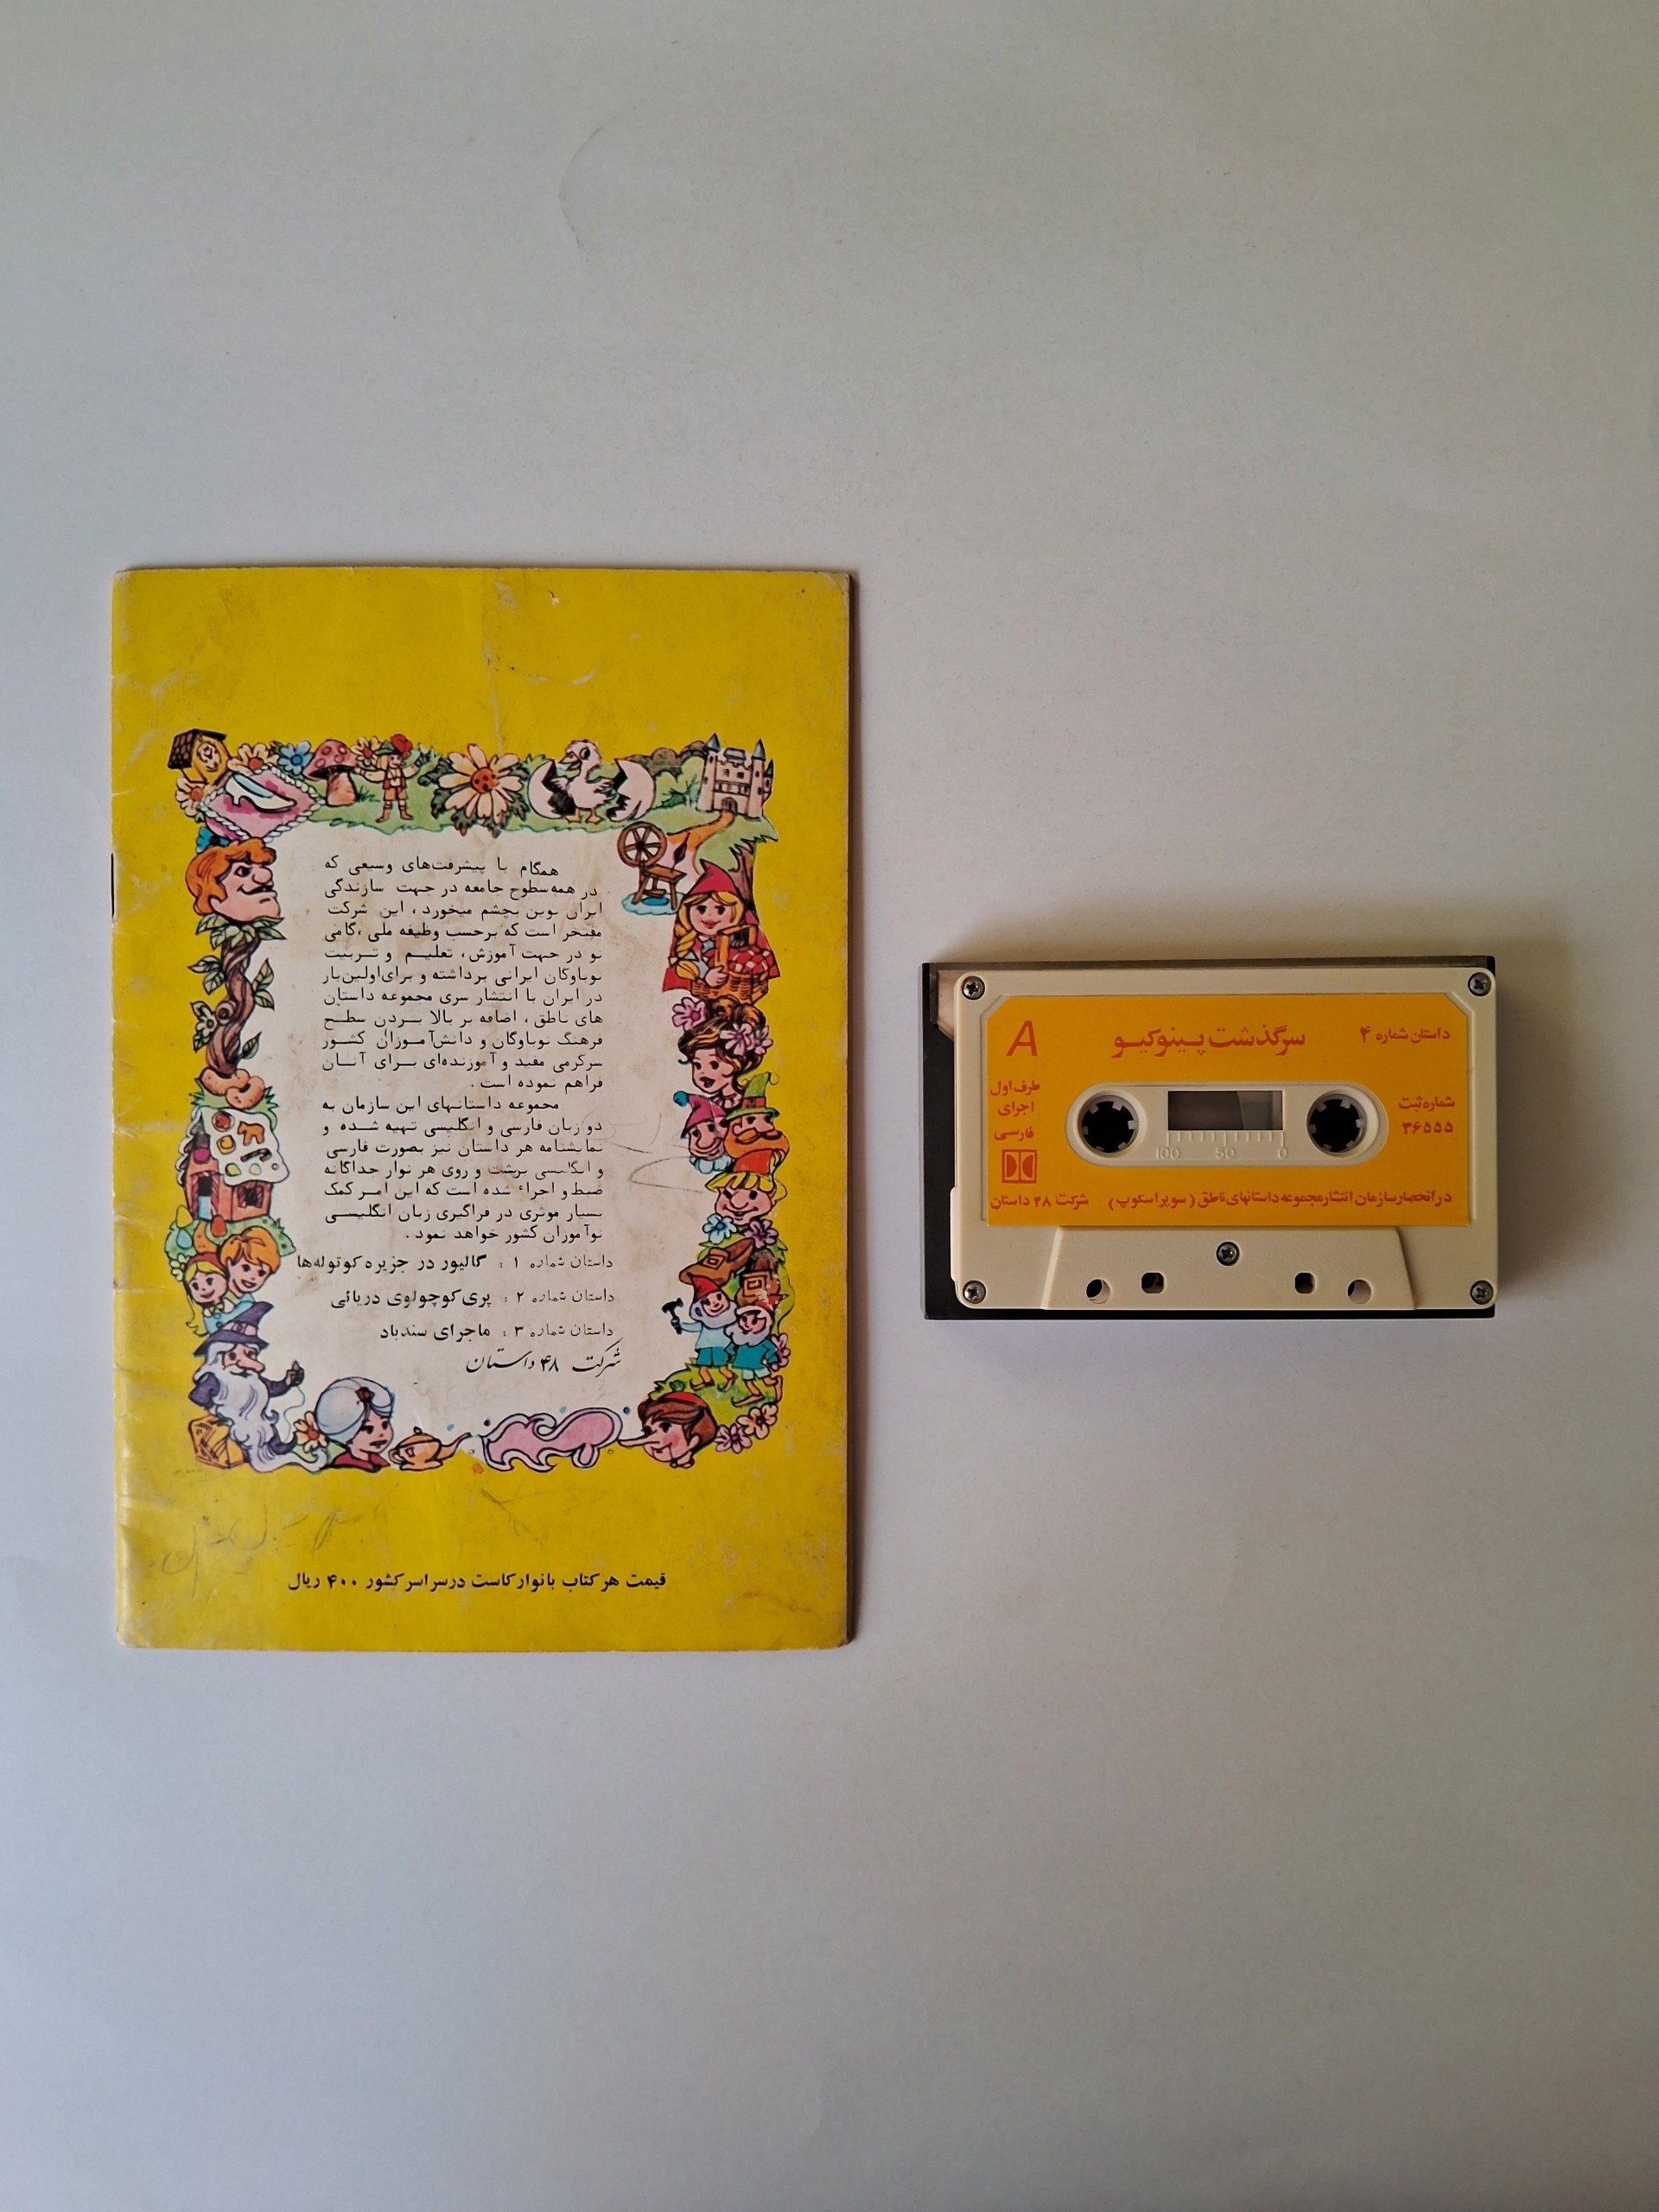 همگام با پیشرفت‌های وسیعی که
در همه سطوح جامعه در جهت سازندگی
ایران نوین بچشم میخورد، این شرکت
مفتخر است که برحسب وظیفه ملی، گامی
نو در جهت آموزش، تعلیم و تربیت
نوباوگان ایرانی برداشته و برای اولین بار
در ایران با انتشار سری مجموعه داستان
های ناطق، اضافه بر بالا بردن سطح
فرهنگ نوباوگان و دانش‌آموزان کشور
سرگرمی مفید و آموزنده‌ای برای آنان
فراهم نموده است.
مجموعه داستانهای این سازمان به
دو زبان فارسی و انگلیسی تهیه شده و
نمایشنامه هر داستان نیز بصورت فارسی
و انگلیسی برشت و روی هر نوار جداگانه
ضبط و اجراء شده است که این امر کمک
بسیار موثری در فراگیری زبان انگلیسی
نوآموزان کشور خواهد نمود.
داستان شماره ۱ : گالیور در جزیره کوتوله‌ها
داستان شماره ۲ : پری کوچولوی دریائی
داستان شماره ۳ : ماجرای سندباد
شرکت ۴۸ داستان
قیمت هر کتاب با نوار کاست در سراسر کشور ۴۰۰ ریال
داستان شماره ۴ سرگذشت پینوکیو A
طرف اول
اجرای
فارسی
شماره ثبت
۳۶۵۵۵
100 50 0
در انحصار سازمان انتشار مجموعه داستانهای ناطق (سوپراسکوپ) شرکت ۴۸ داستان